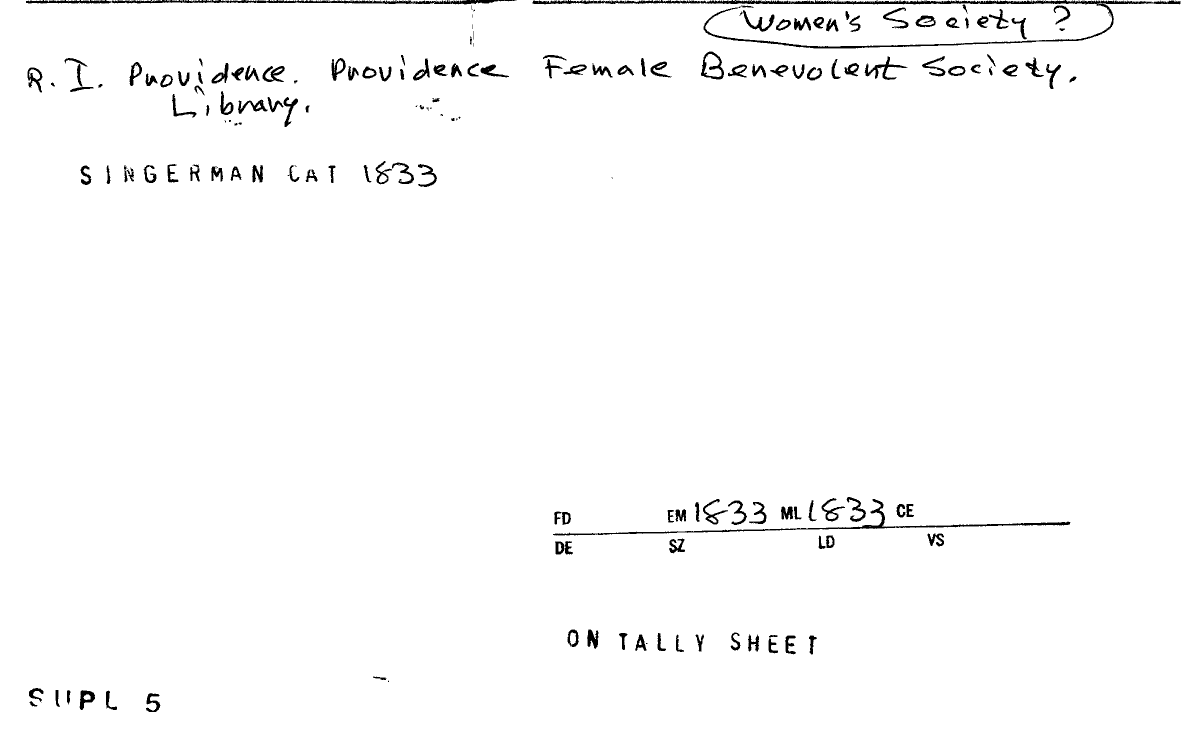 Women's Society ?
R. I. Providence. Providence Female Benevolent Society.
Library.
SINGERMAN CAT 1833
FD EM 1833 ML 1833 CE
DE SZ LD VS
ON TALLY SHEET
SUPL 5